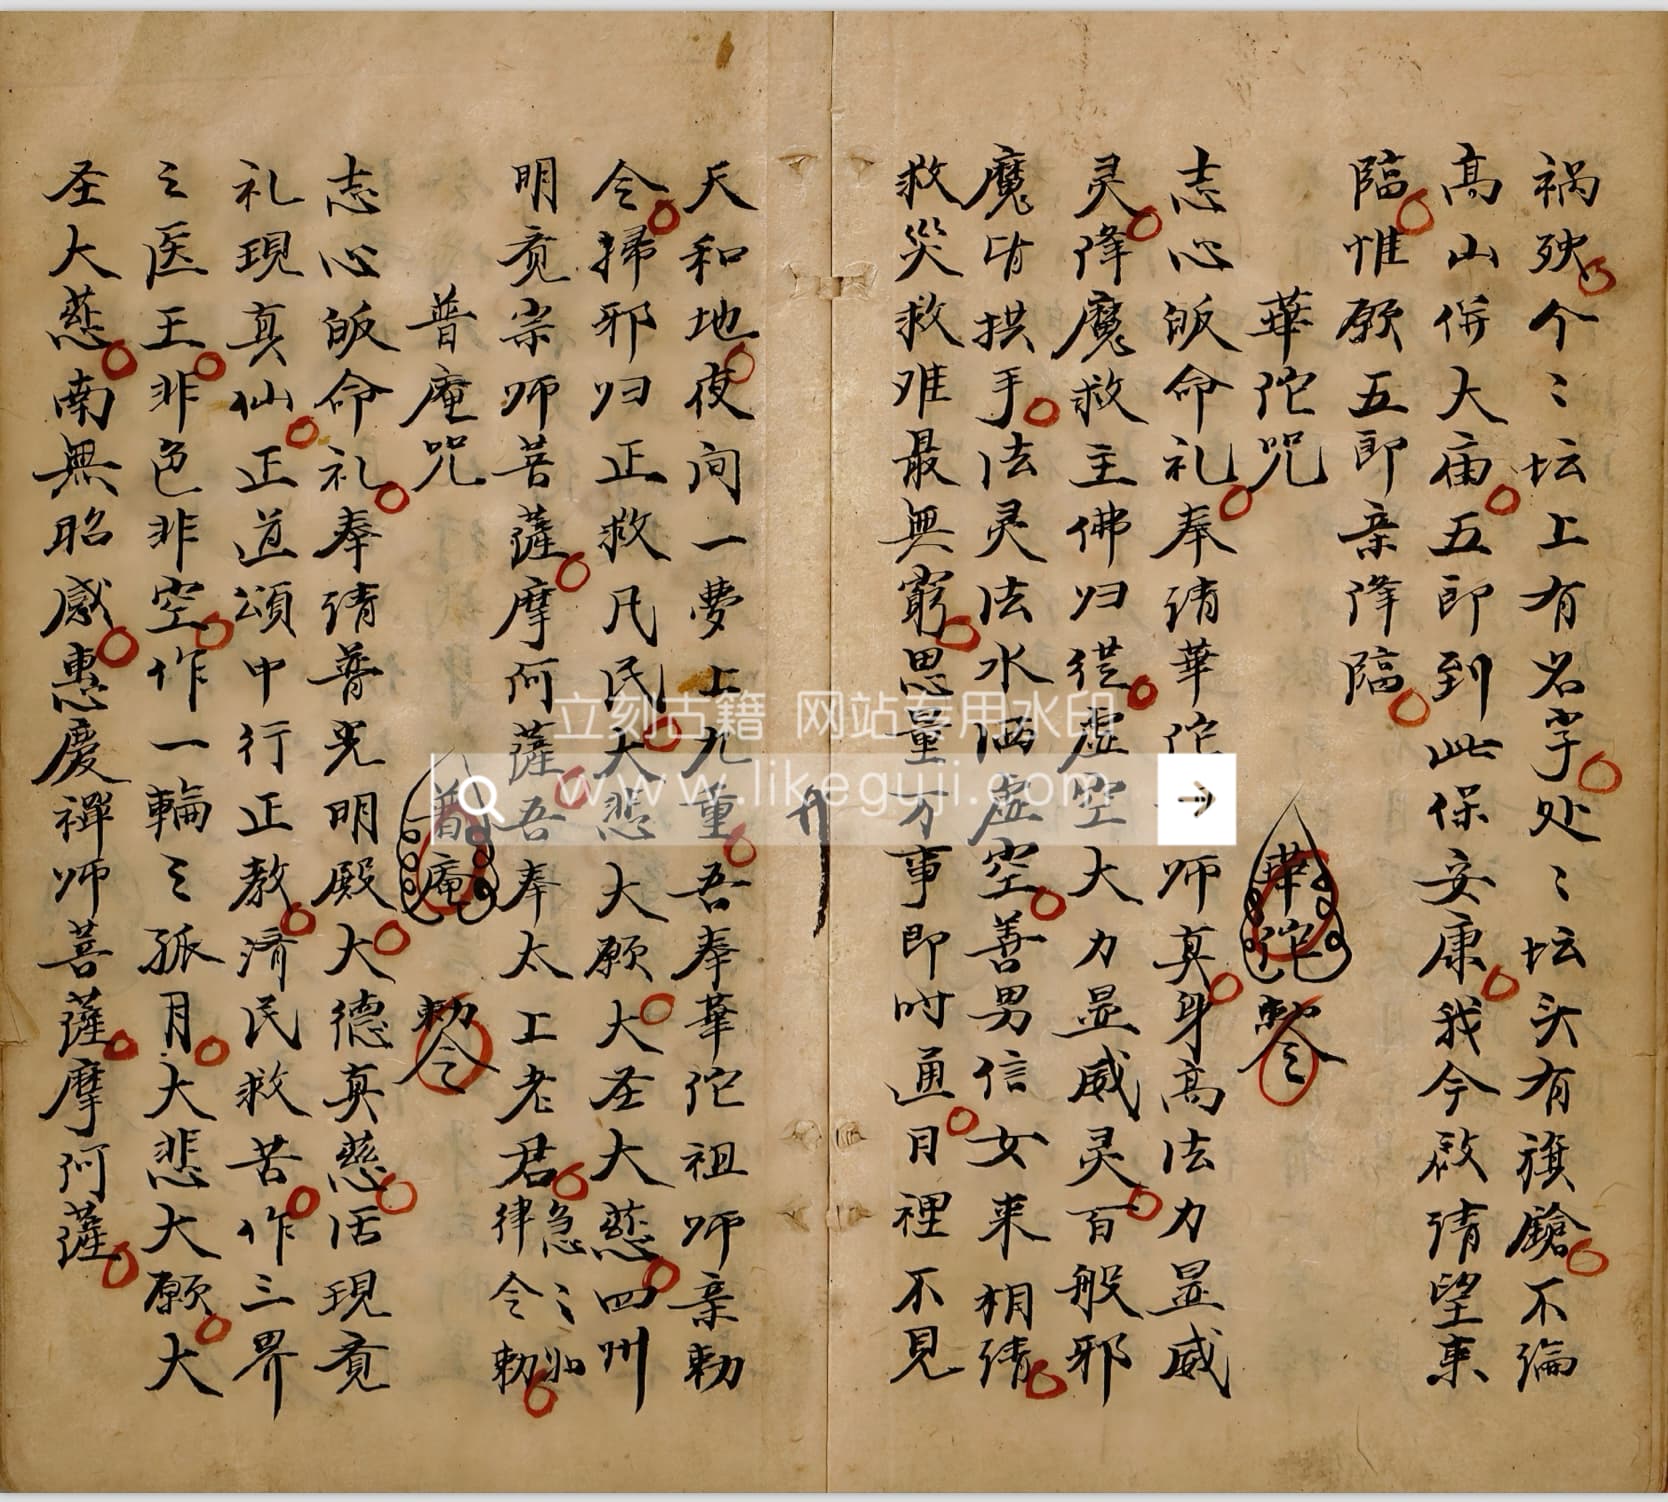 祸殃个〻坛上有名字处〻坛头有旗鎗不論
髙山併大庙五郎到此保安康我今啟请望来
臨惟願五郎亲降臨
華佗咒
華佗
勅令
志心皈命礼奉请華佗师真身髙法力显威
灵降魔救主佛归從虚空大力显威灵百般邪
魔皆拱手法灵法水洒虚空善男信女来相请
救災救难最無窮思量万事即时通目裡不見
天和地夜间一夢上九重吾奉華佗祖师亲勅
令掃邪归正救凡民大悲大願大圣大慈四州
明竟宗师菩薩摩何薩吾奉太上老君急〻如律令勅
普庵咒
普庵
勅令
志心皈命礼奉请普光明殿大德真慈活現竟
礼現真仙正道頌中行正教濟民救苦作三界
〻医王非色非空作一輪〻孤月大悲大願大
圣大慈南無昭感惠慶禅师菩薩摩何薩
立刻古籍 网站专用水印
www.likeguji.com